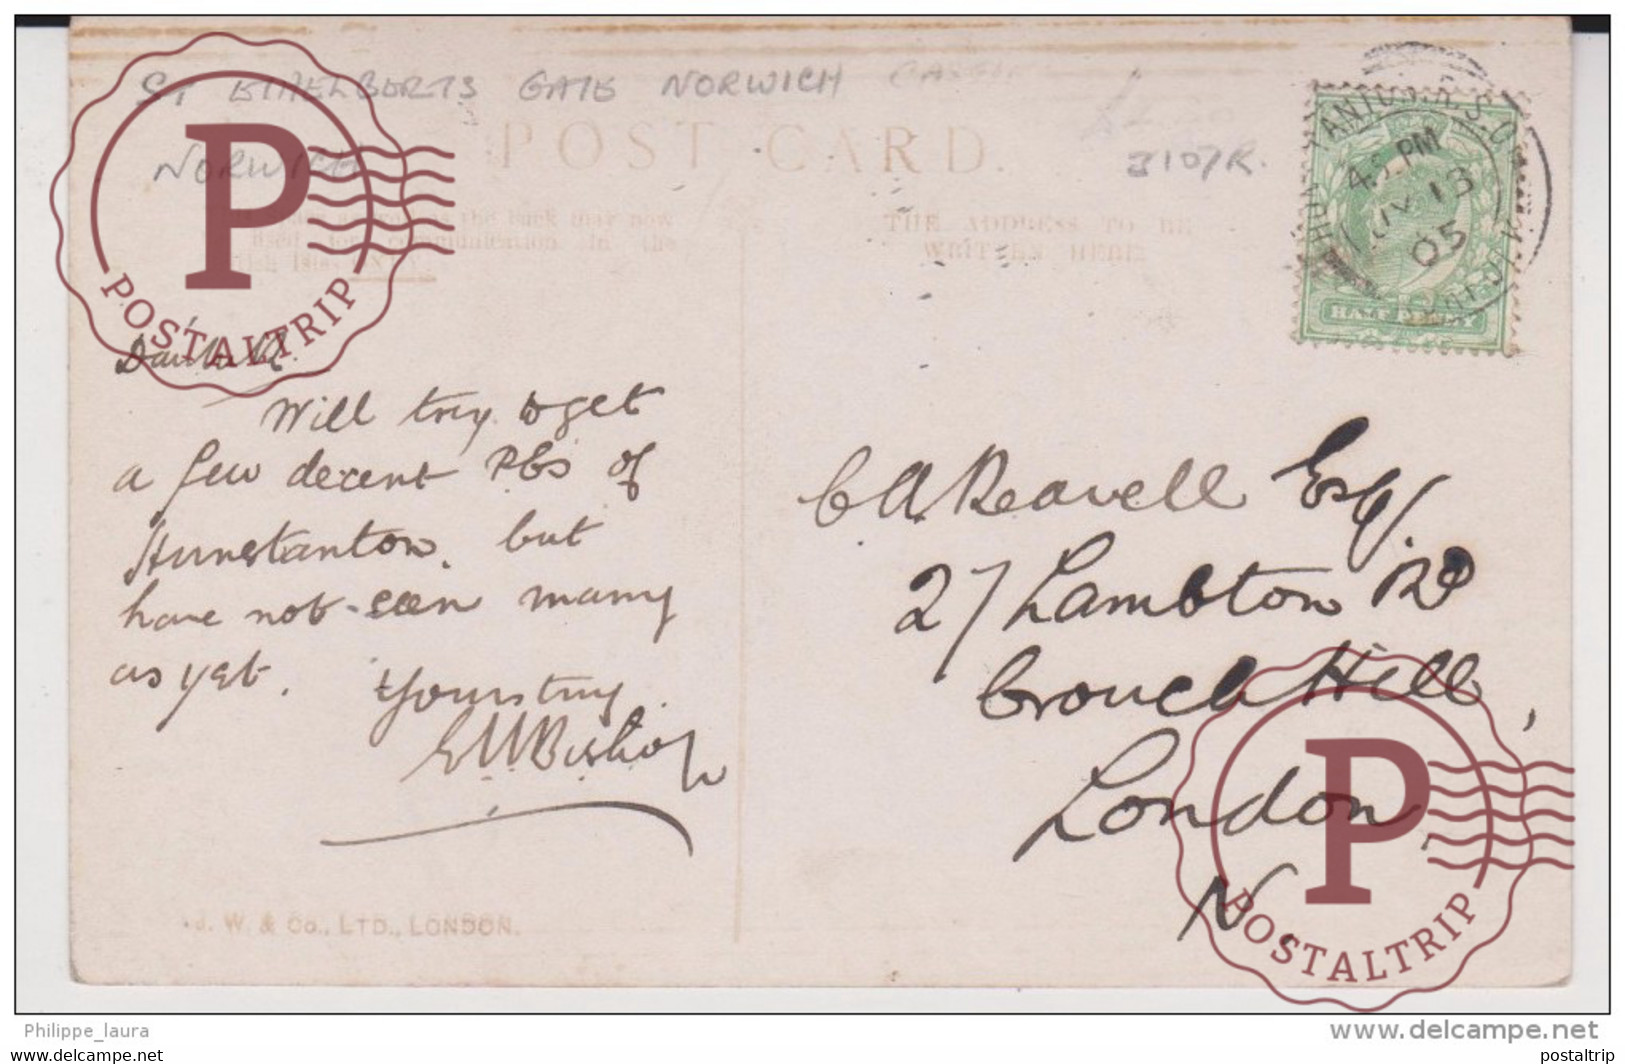 ST ETHELBERTS GATE NORWICH CASTLE
NORWICH
POST CARD.
3107R.
as the back may now
used for communication in the
THE ADDRESS TO BE
WRITTEN HERE
4.5 PM
13
05
HALF PENNY
P
POSTALTRIP
Will try to get
a few decent PCs of
Hunstanton, but
have not seen many
as yet.
Yours truly
E W Bishop
C A Reavell Esq.
27 Lambton Rd
Crouch Hill,
London,
N.
P
POSTALTRIP
J. W. & Co., LTD., LONDON.
Philippe_laura
www.delcampe.net
Philippe_laura
postaltrip